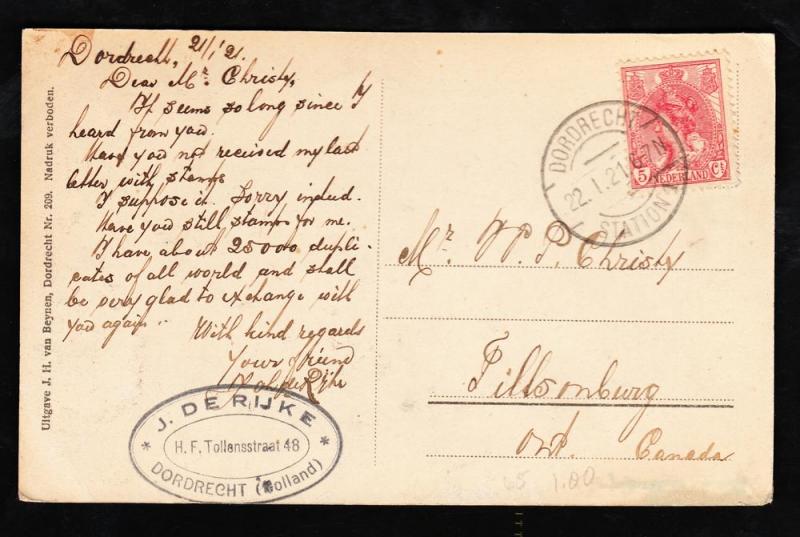 Dordrecht, 21/1 '21.
Dear Mr. Christy,
It seems so long since I
heard from you.
Have you not received my last
letter with stamps
I suppose it. Sorry indeed.
Have you still stamps for me.
I have about 25000 dupli-
cates of all world and shall
be very glad to exchange with
you again.
With kind regards
Your friend
de Rijke
J. DE RIJKE
H. F. Tollensstraat 48
DORDRECHT (Holland)
Uitgave J. H. van Beynen, Dordrecht Nr. 209. Nadruk verboden.
5 NEDERLAND Ct
DORDRECHT
22.1.21.6-7N
STATION
Mr. W. P. Christy
Tillsonburg
Ont. Canada
65 1.00